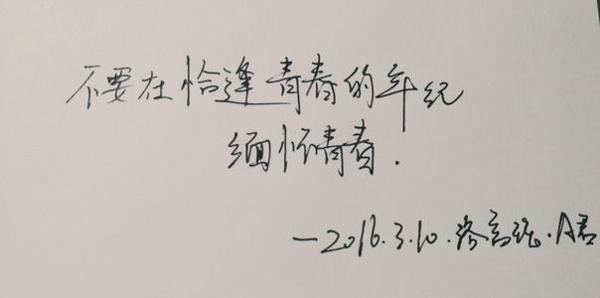 不要在恰逢青春的年纪
缅怀青春.
—2016.3.10.A君